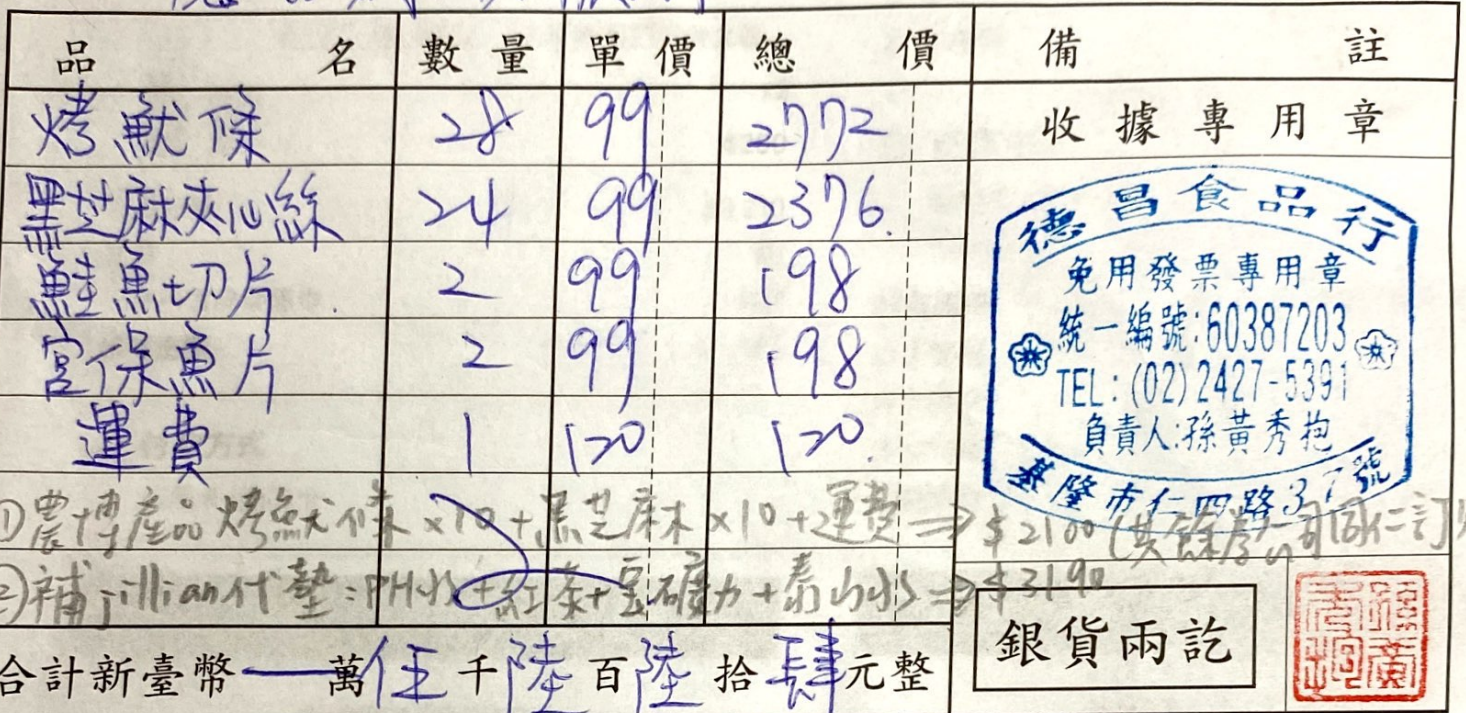 品名 數量 單價 總價 備註
烤魷條 28 99 2772 收據專用章
黑芝麻夾心絲 24 99 2376
鮭魚切片 2 99 198
宮保魚片 2 99 198
運費 1 120 120
德昌食品行
免用發票專用章
統一編號:60387203
TEL:(02)2427-5391
負責人:孫黃秀抱
基隆市仁四路37號
①農博產品烤魷條×10+黑芝麻×10+運費⇒$2100(其餘為公司同仁訂
②補jillian代墊:PH水+紅茶+寶礦力+泰山水⇒$3190
合計新臺幣 萬伍千陸百陸拾肆元整
銀貨兩訖
孫黃秀抱